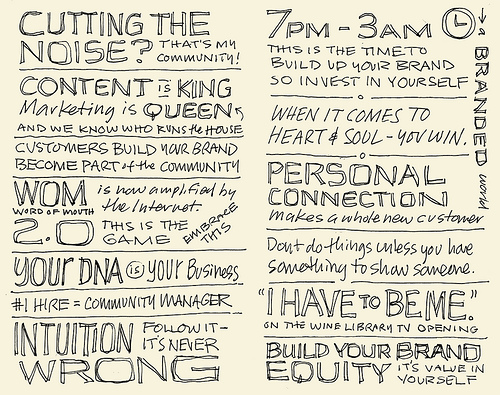 CUTTING THE
NOISE? THAT'S MY
COMMUNITY!
CONTENT IS KING
Marketing is QUEEN
AND WE KNOW WHO RUNS the HOUSE
CUSTOMERS BUILD YOUR BRAND
BECOME PART of the COMMUNITY
WOM is now amplified by
WORD OF MOUTH the Internet.
2.0 THIS IS THE
GAME EMBRACE
THIS
YOUR DNA is YOUR Business
#1 HIRE = COMMUNITY MANAGER
INTUITION FOLLOW IT -
IT'S NEVER
WRONG
7PM - 3AM
THIS IS THE TIME TO
BUILD UP YOUR BRAND
SO INVEST IN YOURSELF
WHEN IT COMES TO
HEART & SOUL - YOU WIN.
PERSONAL
CONNECTION
makes a whole new customer
Dont do things unless you have
something to show someone.
"I HAVE TO BE ME."
ON THE WINE LIBRARY TV OPENING
BUILD YOUR BRAND
EQUITY IT'S VALUE IN
YOURSELF
→ a BRANDED world